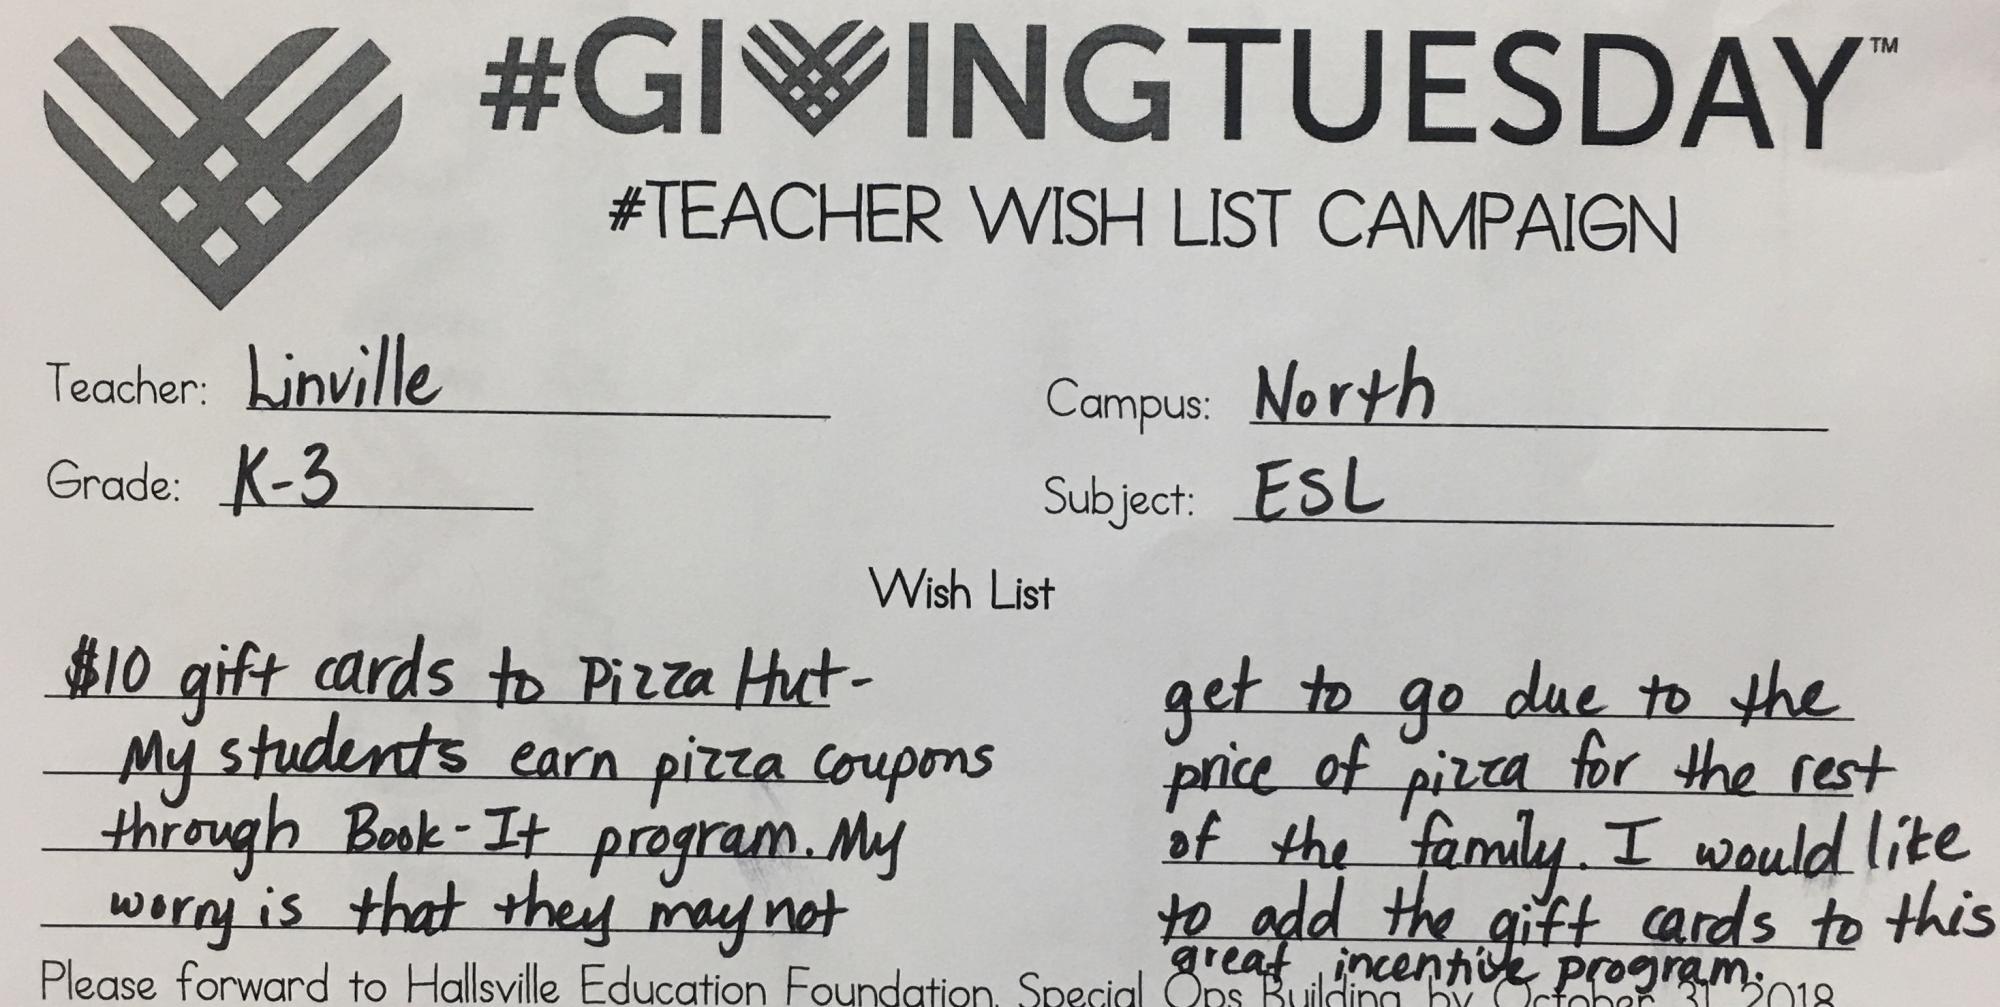 #GIVINGTUESDAY™
#TEACHER WISH LIST CAMPAIGN
Teacher: Linville
Campus: North
Grade: K-3
Subject: ESL
Wish List
$10 gift cards to Pizza Hut-
My students earn pizza coupons
through Book-It program. My
worry is that they may not
get to go due to the
price of pizza for the rest
of the family. I would like
to add the gift cards to this
great incentive program.
Please forward to Hallsville Education Foundation, Special Ops Building by October 31, 2018